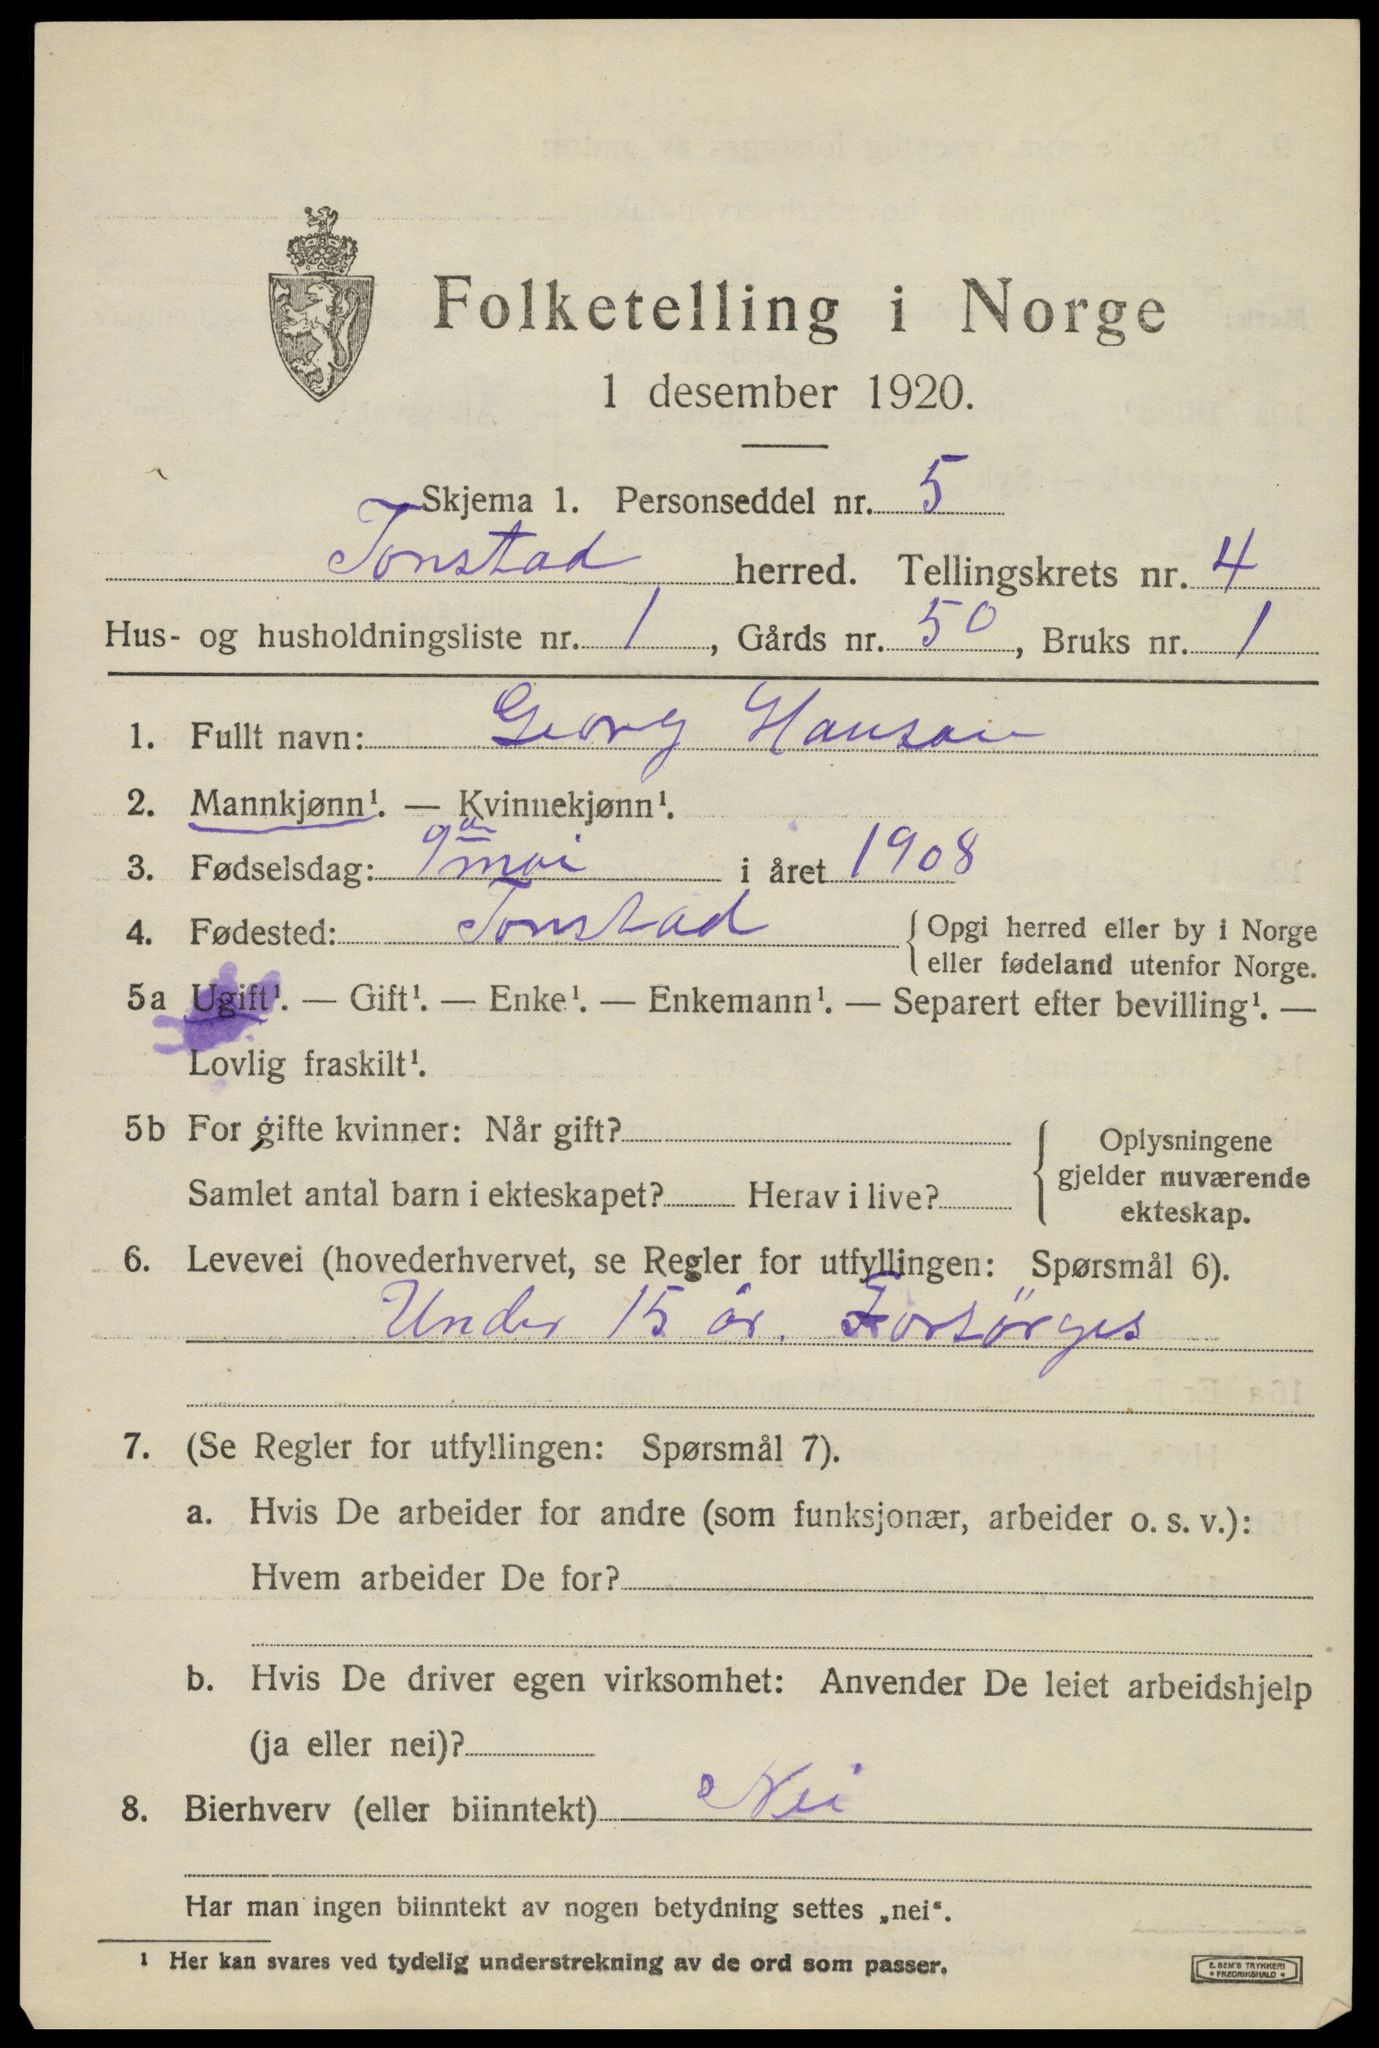 Folketelling i Norge
1 desember 1920.
Skjema 1. Personseddel nr. 5
Tonstad herred. Tellingskrets nr. 4
Hus- og husholdningsliste nr. 1, Gårds nr. 50, Bruks nr. 1
1. Fullt navn: Georg Hansen
2. Mannkjønn¹. — Kvinnekjønn¹.
3. Fødselsdag: 9de mai i året 1908
4. Fødested: Tonstad { Opgi herred eller by i Norge
eller fødeland utenfor Norge.
5a Ugift¹. — Gift¹. — Enke¹. — Enkemann¹. — Separert efter bevilling¹. —
Lovlig fraskilt¹.
5b For gifte kvinner: Når gift?
Samlet antal barn i ekteskapet? Herav i live?
{ Oplysningene
gjelder nuværende
ekteskap.
6. Levevei (hovederhvervet, se Regler for utfyllingen: Spørsmål 6).
Under 15 år. Forsørges
7. (Se Regler for utfyllingen: Spørsmål 7).
a. Hvis De arbeider for andre (som funksjonær, arbeider o. s. v.):
Hvem arbeider De for?
b. Hvis De driver egen virksomhet: Anvender De leiet arbeidshjelp
(ja eller nei)?
8. Bierhverv (eller biinntekt) Nei
Har man ingen biinntekt av nogen betydning settes „nei“.
¹ Her kan svares ved tydelig understrekning av de ord som passer.
E. SEM'S TRYKKERI
• FREDRIKSHALD •